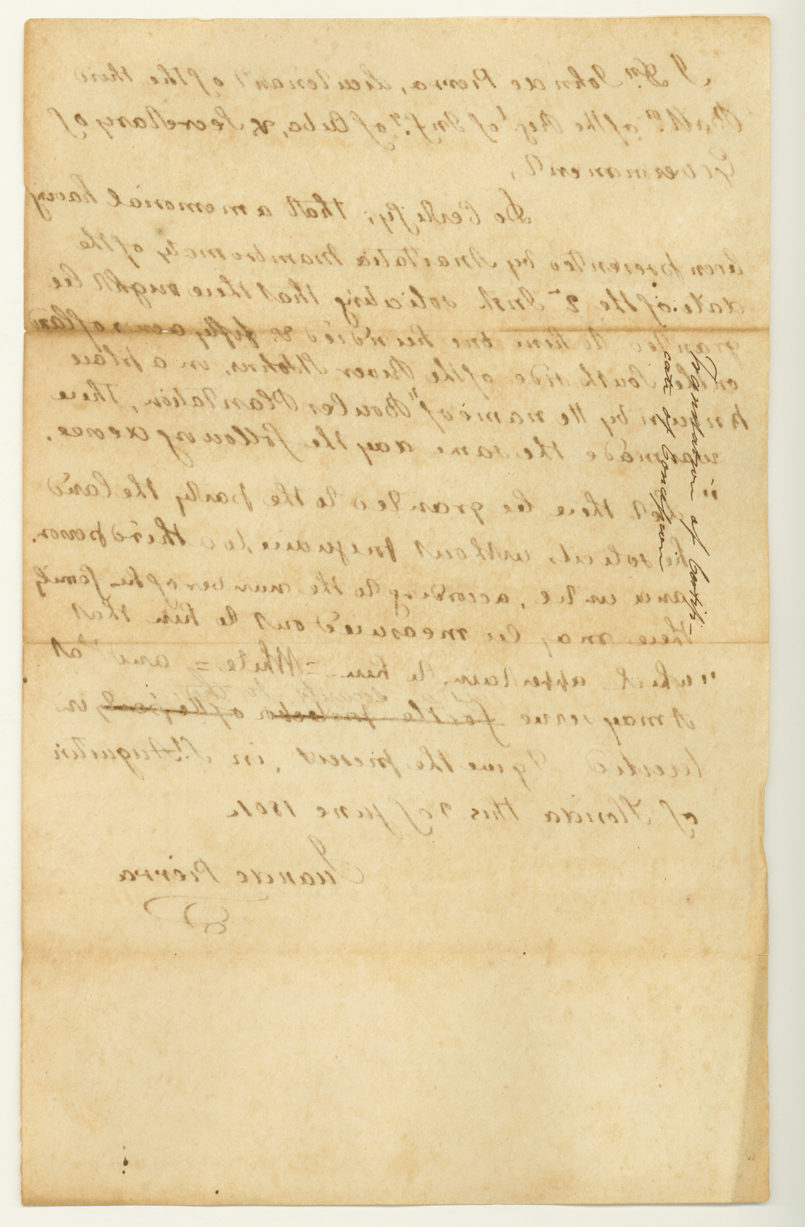 I Dn. John de Pierra, Lieutenant of the third
Batt.n of the Reg.t of Inf.y of Cuba, & Secretary of
Government,
Do Certify; that a memorial having
been presented by Anastatia Mambromaty of the
date of the 2d Inst. soliciting that there might be
granted to him one hundred & fifty acres of land
on the South side of the River St Johns, in a place
known by the name of Plantation, There
was made the same day the following decree,
" Let there be granted to the party the land
he solicits without prejudice to a third person.
and until, according to the number of his family
there may be measured out to him that
" which appertains to him = White = and that
it may serve for the of the party, is
I give the present, in St Augustin
of Florida this 7 of June 1801.
Juan de Pierra
Translation of Certifi-
cate of Concession